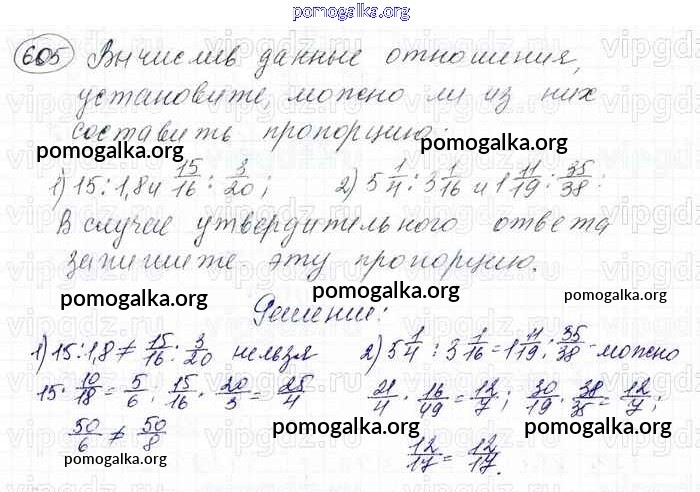 pomogalka.org
605 Вычислив данные отношения,
установите, можно ли из них
составить пропорцию:
pomogalka.org pomogalka.org
1) 15 : 1,8 и 15/16 : 3/20 ; 2) 5 1/4 : 3 1/16 и 1 11/19 : 35/38 .
В случае утвердительного ответа
запишите эту пропорцию.
pomogalka.org pomogalka.org pomogalka.org
Решение:
1) 15 : 1,8 ≠ 15/16 : 3/20 нельзя 2) 5 1/4 : 3 1/16 = 1 11/19 : 35/38 - можно
15 · 10/18 = 5/6 ; 15/16 · 20/3 = 25/4 21/4 · 16/49 = 12/7 ; 30/19 · 38/35 = 12/7 ;
pomogalka.org pomogalka.org pomogalka.org
50/6 ≠ 50/8 12/17 = 12/17 .
pomogalka.org pomogalka.org